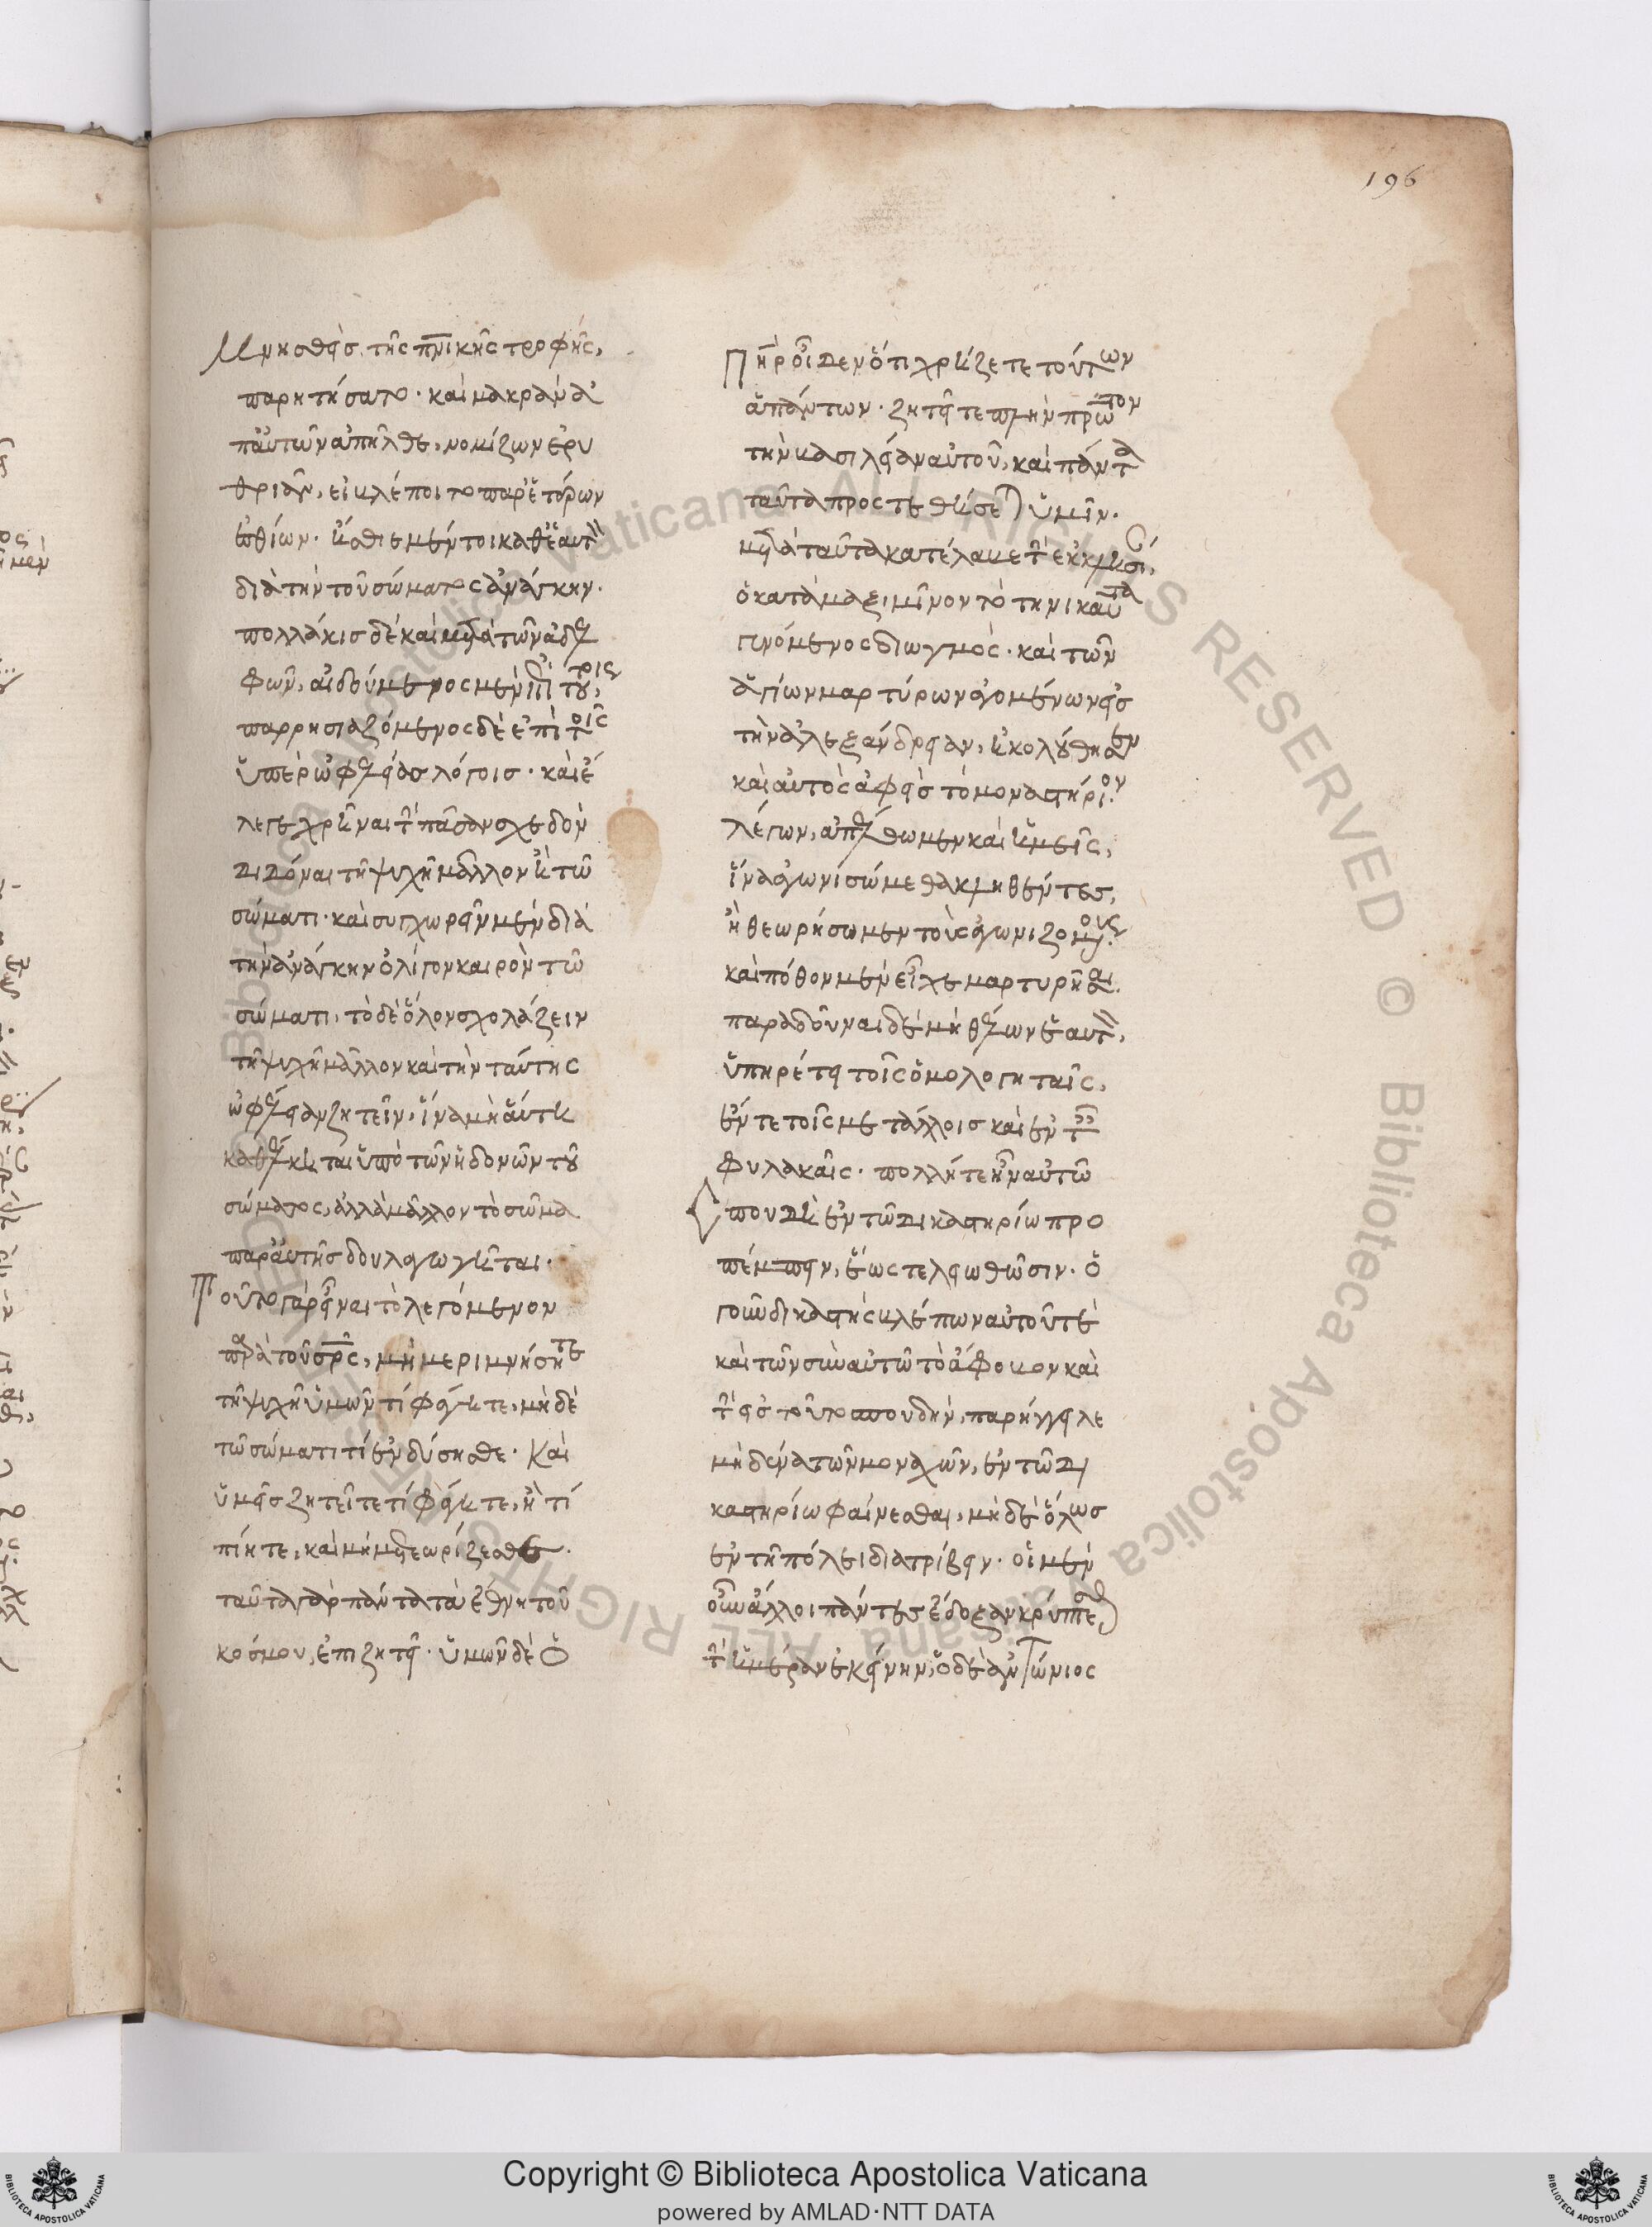 196
Μνησθεὶς τῆς πνικῆς τροφῆς,
παρητήσατο· καὶ μακρὰν ἀ
π' αὐτῶν ἀπῆλθε, νομίζων ἐρυ
θριᾶν, εἰ βλέποιτο παρ' ἑτέρων
ἐσθίων. ἤσθιε μέντοι καθ' ἑαυτὸν
διὰ τὴν τοῦ σώματος ἀνάγκην.
πολλάκις δὲ καὶ μετὰ τῶν ἀδελ
φῶν, αἰδούμενος μὲν ἐπὶ τούτοις,
παρρησιαζόμενος δὲ ἐπὶ τοῖς
ὑπὲρ ὠφελείας λόγοις· καὶ ἔ
λεγε χρῆναι τὴν πᾶσαν σχεδὸν
διδόναι τῇ ψυχῇ μᾶλλον ἢ τῷ
σώματι· καὶ συγχωρεῖν μὲν διὰ
τὴν ἀνάγκην ὀλίγον καιρὸν τῷ
σώματι, τὸ δὲ ὅλον σχολάζειν
τῇ ψυχῇ μᾶλλον καὶ τὴν ταύτης
ὠφέλειαν ζητεῖν, ἵνα μὴ αὐτὴ
καθέλκηται ὑπὸ τῶν ἡδονῶν τοῦ
σώματος, ἀλλὰ μᾶλλον τὸ σῶμα
παρ' αὐτῆς δουλαγωγῆται.
Τοῦτο γὰρ εἶναι τὸ λεγόμενον
παρὰ τοῦ σρς, μὴ μεριμνήσητε
τῇ ψυχῇ ὑμῶν τί φάγητε, μὴ δὲ
τῷ σώματι τί ἐνδύσησθε. Καὶ
ὑμεῖς ζητεῖτε τί φάγητε, ἢ τί
πίητε, καὶ μὴ μετεωρίζεσθε.
ταῦτα γὰρ πάντα τὰ ἔθνη τοῦ
κόσμου, ἐπιζητεῖ. ὑμῶν δὲ ὁ
Πὴρ οἶδεν ὅτι χρήζετε τούτων
ἁπάντων. ζητεῖτε πλὴν πρῶτον
τὴν βασιλείαν αὐτοῦ, καὶ πάντα
ταῦτα προστεθήσεται ὑμῖν.
μετὰ ταῦτα κατέλαβε τὴν ἐκκλησίαν,
ὁ κατὰ Μαξιμῖνον τὸ τηνικαῦτα
γινόμενος διωγμός. καὶ τῶν
ἁγίων μαρτύρων ἀγομένων εἰς
τὴν Ἀλεξάνδρειαν, ἠκολούθησεν
καὶ αὐτὸς ἀφεὶς τὸ μοναστήριον
λέγων, ἀπέλθωμεν καὶ ἡμεῖς,
ἵνα ἀγωνισώμεθα κληθέντες,
ἢ θεωρήσωμεν τοὺς ἀγωνιζομένους.
καὶ πόθον μὲν εἶχε μαρτυρῆσαι.
παραδοῦναι δὲ μὴ θέλων ἑαυτὸν,
ὑπηρέτει τοῖς ὁμολογηταῖς,
ἔν τε τοῖς μετάλλοις καὶ ἐν ταῖς
φυλακαῖς. πολλή τε ἦν αὐτῷ
σπουδὴ ἐν τῷ δικαστηρίῳ προ
πέμπειν, ἕως τελειωθῶσιν. ὁ
γοῦν δικαστὴς βλέπων αὐτοῦ τὲ
καὶ τῶν σὺν αὐτῷ τὸ ἄφοβον καὶ
τὴν εἰς τοῦτο σπουδὴν, παρήγγειλε
μηδένα τῶν μοναχῶν, ἐν τῷ δι
καστηρίῳ φαίνεσθαι, μὴ δὲ ὅλως
ἐν τῇ πόλει διατρίβειν. οἱ μὲν
οὖν ἄλλοι πάντες ἔδοξαν κρύπτεσθαι
τὴν ἡμέραν ἐκείνην, ὁ δὲ Ἀντώνιος
Copyright © Biblioteca Apostolica Vaticana
powered by AMLAD·NTT DATA